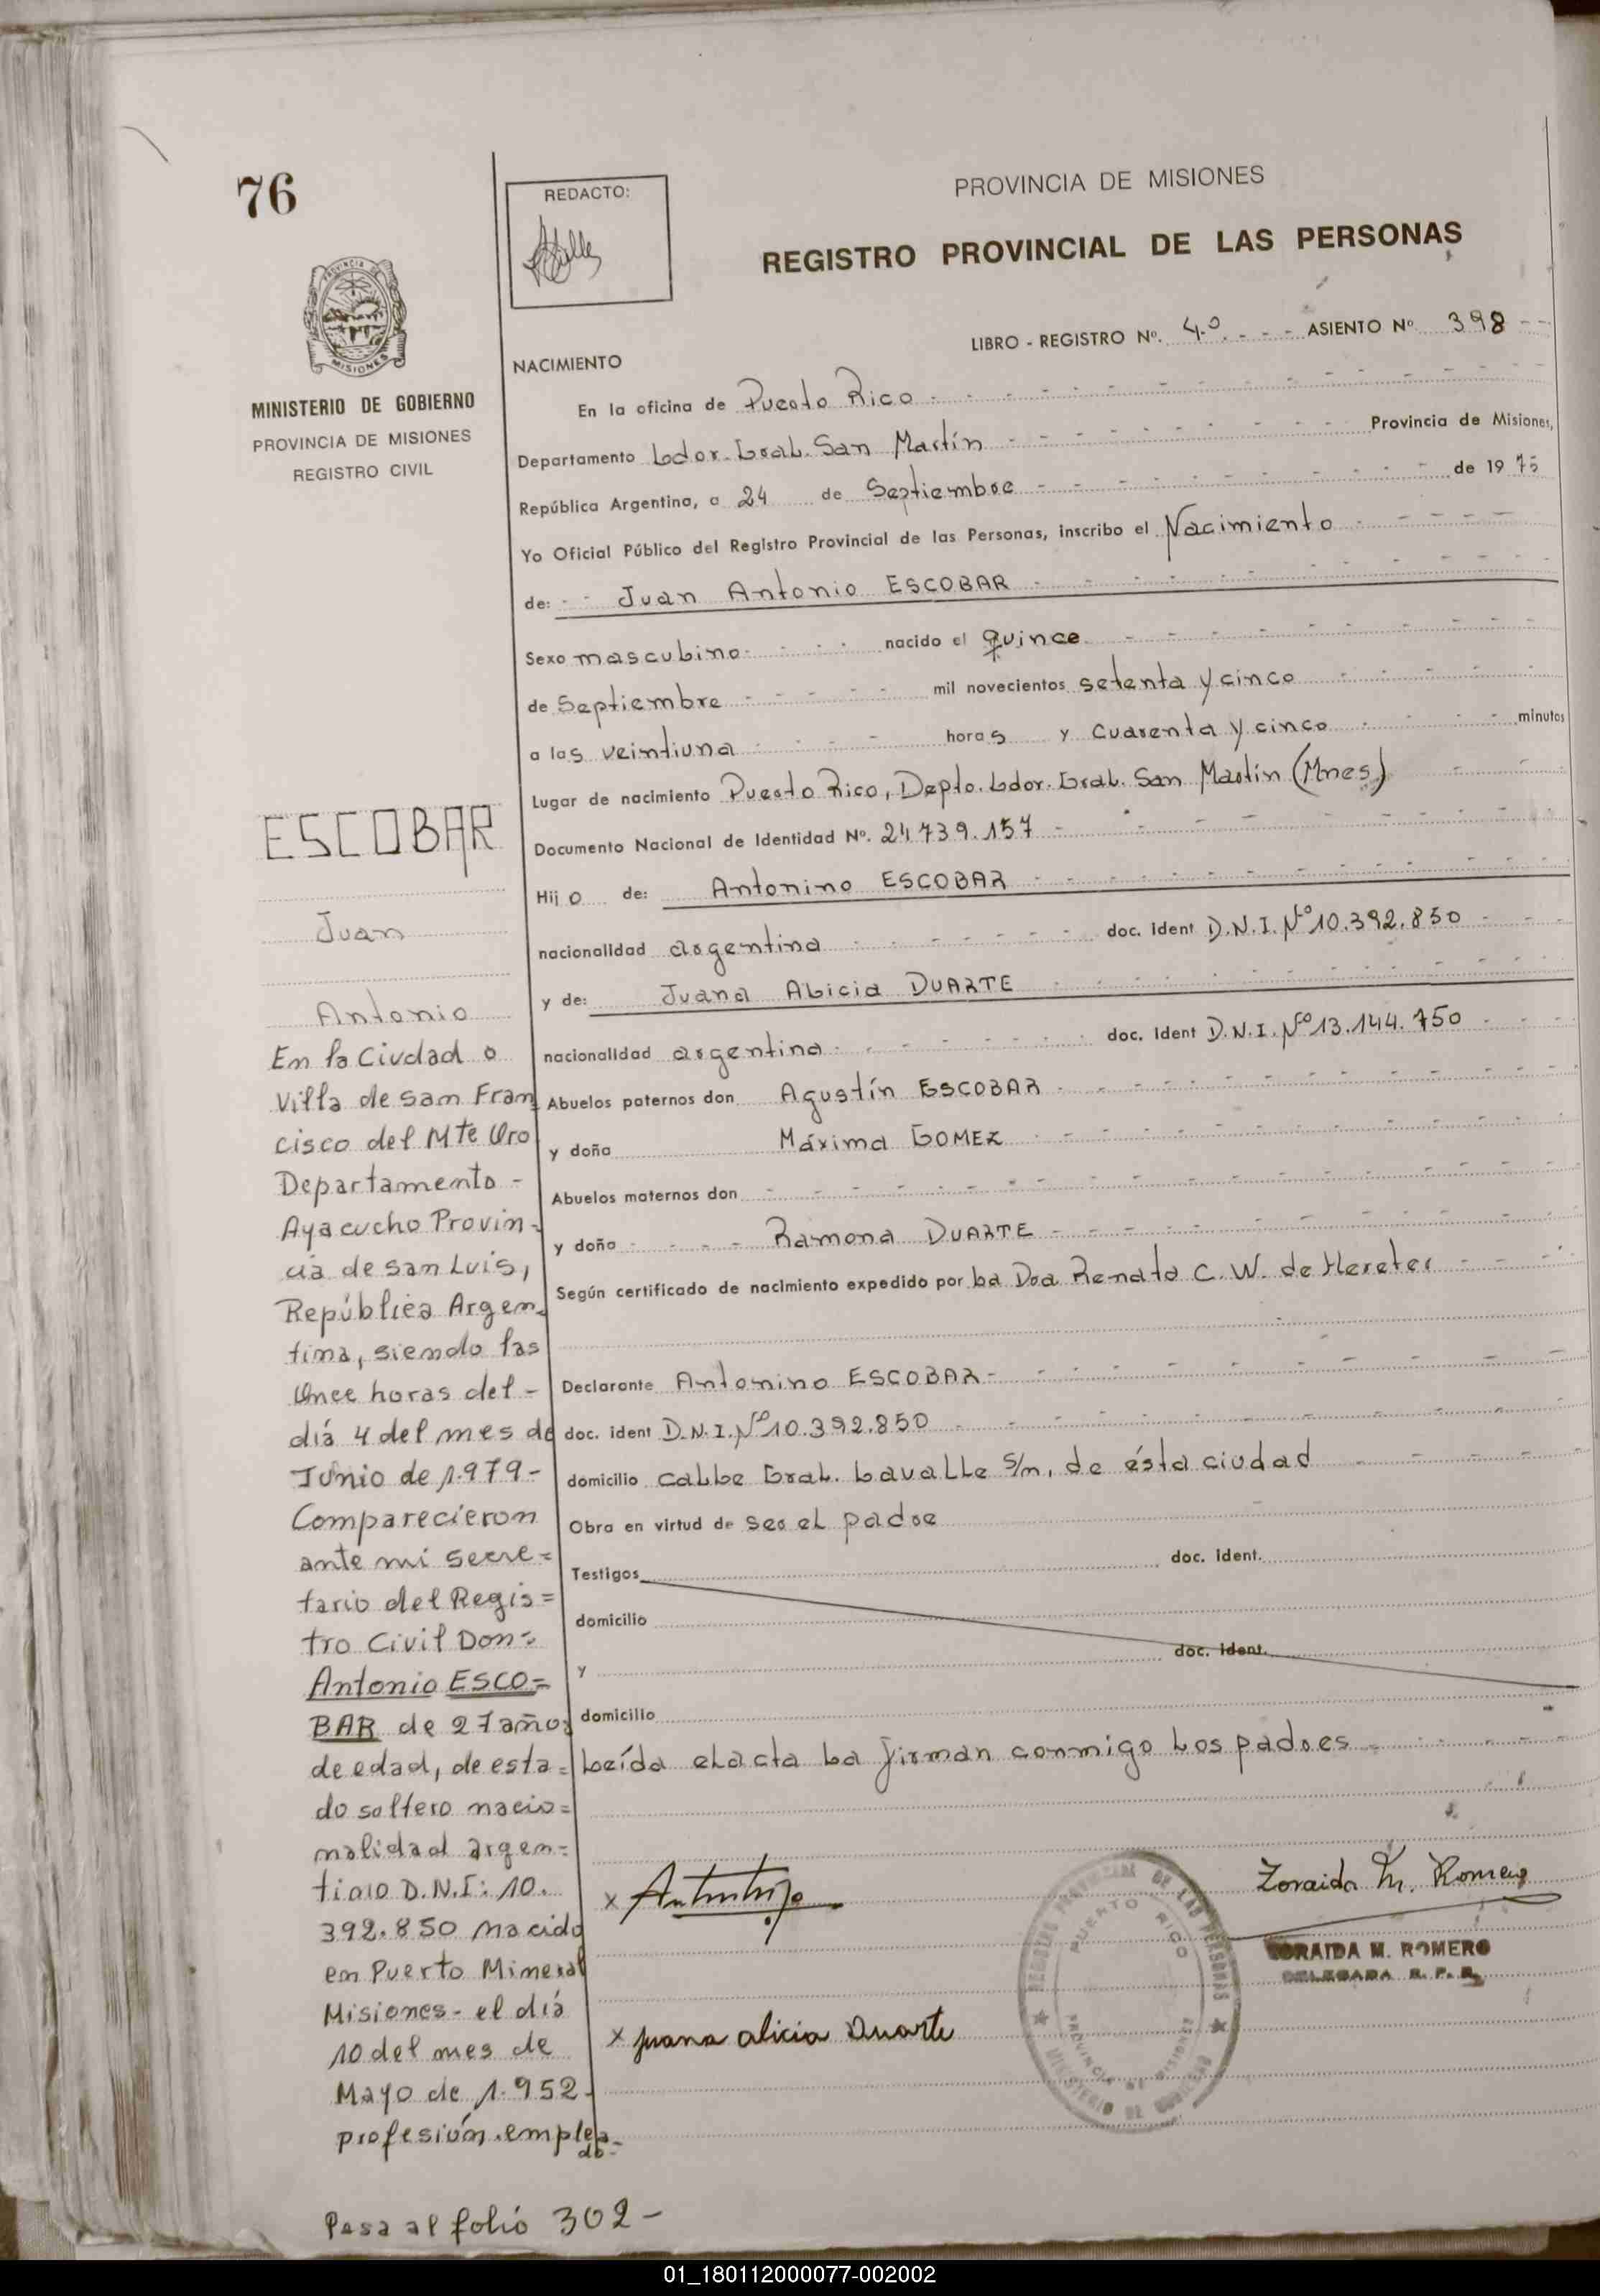 76
REDACTO:
PROVINCIA DE MISIONES
REGISTRO PROVINCIAL DE LAS PERSONAS
LIBRO - REGISTRO Nº. 4º - - - ASIENTO Nº 398 - -
MISIONES
MINISTERIO DE GOBIERNO
PROVINCIA DE MISIONES
REGISTRO CIVIL
NACIMIENTO
En la oficina de Puerto Rico
Departamento Ldor. Gral. San Martín Provincia de Misiones,
República Argentina, a 24 de Septiembre de 1975
Yo Oficial Público del Registro Provincial de las Personas, inscribo el Nacimiento
de: Juan Antonio ESCOBAR
Sexo masculino nacido el quince
de Septiembre mil novecientos setenta y cinco
a las veintiuna horas y cuarenta y cinco minutos
Lugar de nacimiento Puerto Rico, Depto. Ldor. Gral. San Martín (Mnes)
Documento Nacional de Identidad Nº. 24.739.157
Hijo de: Antonino ESCOBAR
nacionalidad argentina doc. ident D.N.I. Nº 10.392.850
y de: Juana Alicia DUARTE
nacionalidad argentina doc. ident D.N.I. Nº 13.144.750
Abuelos paternos don Agustín ESCOBAR
y doña Máxima GOMEZ
Abuelos maternos don
y doña Ramona DUARTE
Según certificado de nacimiento expedido por la Dra Renata C. W. de Hereter
Declarante Antonino ESCOBAR
doc. ident D.N.I. Nº 10.392.850
domicilio calle Gral. Lavalle s/n, de ésta ciudad
Obra en virtud de ser el padre
Testigos doc. ident.
domicilio
y doc. ident.
domicilio
Leída el acta la firman conmigo los padres
x
x Juana alicia Duarte
Zoraida M. Romero
ZORAIDA M. ROMERO
DELEGADA R. P. P.
REGISTRO PROVINCIAL DE LAS PERSONAS
PUERTO RICO
PROVINCIA DE MISIONES
MINISTERIO DE GOBIERNO
ESCOBAR
Juan
Antonio
En la Ciudad o
Villa de San Fran
cisco del Mte Oro
Departamento -
Ayacucho Provin-
cia de San Luis,
República Argen-
tina, siendo las
Once horas del -
día 4 del mes de
Junio de 1.979-
Comparecieron
ante mi secre=
tario del Regis=
tro Civil Don=
Antonio ESCO=
BAR de 27 años
de edad, de esta=
do soltero nacio=
nalidad argen=
tino D.N.I: 10.
392.850 nacido
en Puerto Mineral
Misiones - el día
10 del mes de
Mayo de 1.952-
profesión.emplea
do-
Pasa al folio 302-
01_180112000077-002002